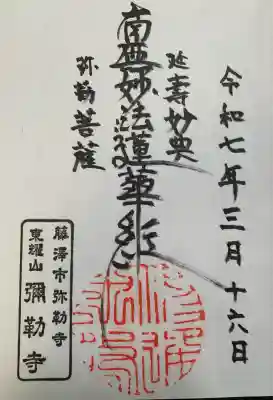 令和七年三月十六日
延壽妙典
南無妙法蓮華経
弥勒菩薩
藤澤市弥勒寺
東耀山 彌勒寺